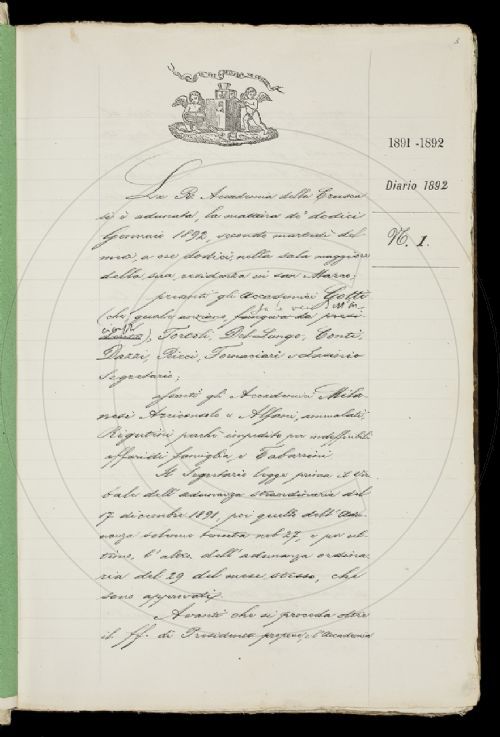 5
1891-1892
Diario 1892
N. 1.
La R. Accademia della Crusca
si è adunata, la mattina de' dodici
Gennaio 1892, secondo martedì del
mese, a ore dodici, nella sala maggiore
della sua residenza in San Marco;
presenti gli Accademici Gotti
(che, quale anziano, fungeva da
), Tortoli, Del Lungo, Conti,
Dazzi, Ricci, Tornaciari e
Segretario;
assenti gli Accademici Mila-
nesi Arciconsolo e Alfani, ammalati,
Rigutini perchè impedito per indeffettibili
affari di famiglia, e Tabarrini
Il Segretario legge prima il ver-
bale dell'adunanza straordinaria del
17 dicembre 1891, poi quello dell'adu-
nanza solenne tenuta nel 27, e per ul-
timo, l'altro dell'adunanza ordina-
ria del 29 del mese stesso, che
sono approvati
Avanti che si proceda oltre
il ff. di Presidente propone l'Accademia